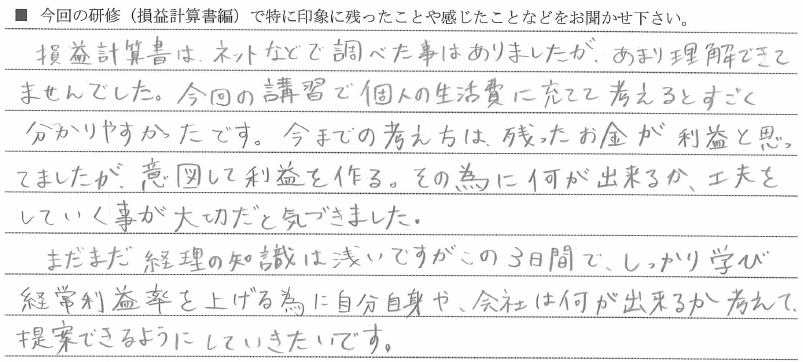 ■ 今回の研修（損益計算書編）で特に印象に残ったことや感じたことなどをお聞かせ下さい。
損益計算書は、ネットなどで調べた事はありましたが、あまり理解できて
ませんでした。今回の講習で個人の生活費に充てて考えるとすごく
分かりやすかったです。今までの考え方は、残ったお金が利益と思っ
てましたが、意図して利益を作る。その為に何が出来るか、工夫を
していく事が大切だと気づきました。
まだまだ経理の知識は浅いですがこの3日間で、しっかり学び
経常利益率を上げる為に自分自身や、会社は何が出来るか考えて、
提案できるようにしていきたいです。